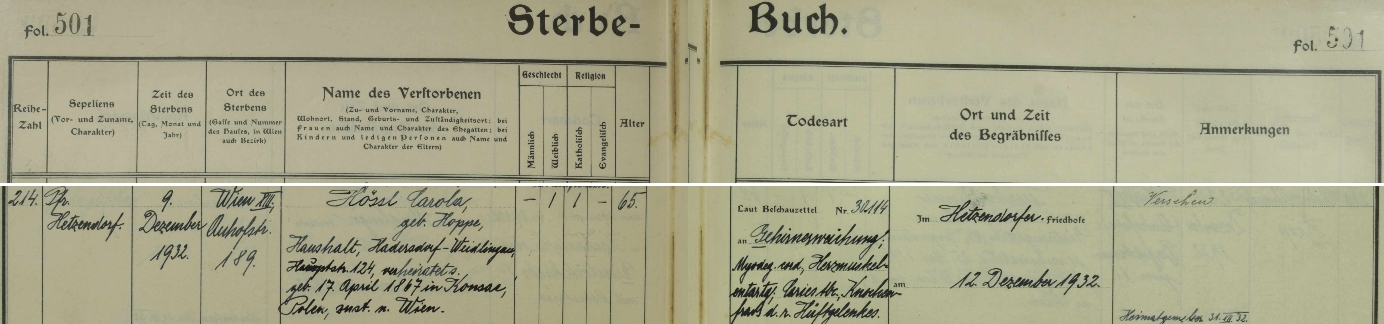 Fol. 501
Sterbe-
Buch.
Fol. 501
Reihe-
Zahl
Sepeliens
(Vor- und Zuname,
Charakter)
Zeit des
Sterbens
(Tag, Monat und
Jahr)
Ort des
Sterbens
(Gasse und Nummer
des Hauses, in Wien
auch Bezirk)
Name des Verstorbenen
(Zu- und Vorname, Charakter,
Wohnort, Stand, Geburts- und Zuständigkeitsort; bei
Frauen auch Name und Charakter des Ehegatten; bei
Kindern und ledigen Personen auch Name und
Charakter der Eltern)
Geschlecht
Männlich
Weiblich
Religion
Katholisch
Evangelisch
Alter
Todesart
Ort und Zeit
des Begräbnisses
Anmerkungen
214.
Pfr.
Hetzendorf.
9.
Dezember
1932.
Wien XIII,
Auhofstr.
189.
Hössl Carola,
geb. Hoppe,
Haushalt, Hadersdorf-Weidlingau,
Hauptstr. 124, verheiratet,
geb. 17. April 1867 in
Polen, zust. n. Wien.
– 1 1 – 65.
Laut Beschauzettel Nr. 30114
an Gehirnerweichung,
Myodeg. cord, Herzmuskel-
entartg, Caries tbc., Knochen-
frass d. r. Hüftgelenkes.
Im Hetzendorfer Friedhofe
am 12. Dezember 1932.
Versehen
31. XII. 32.